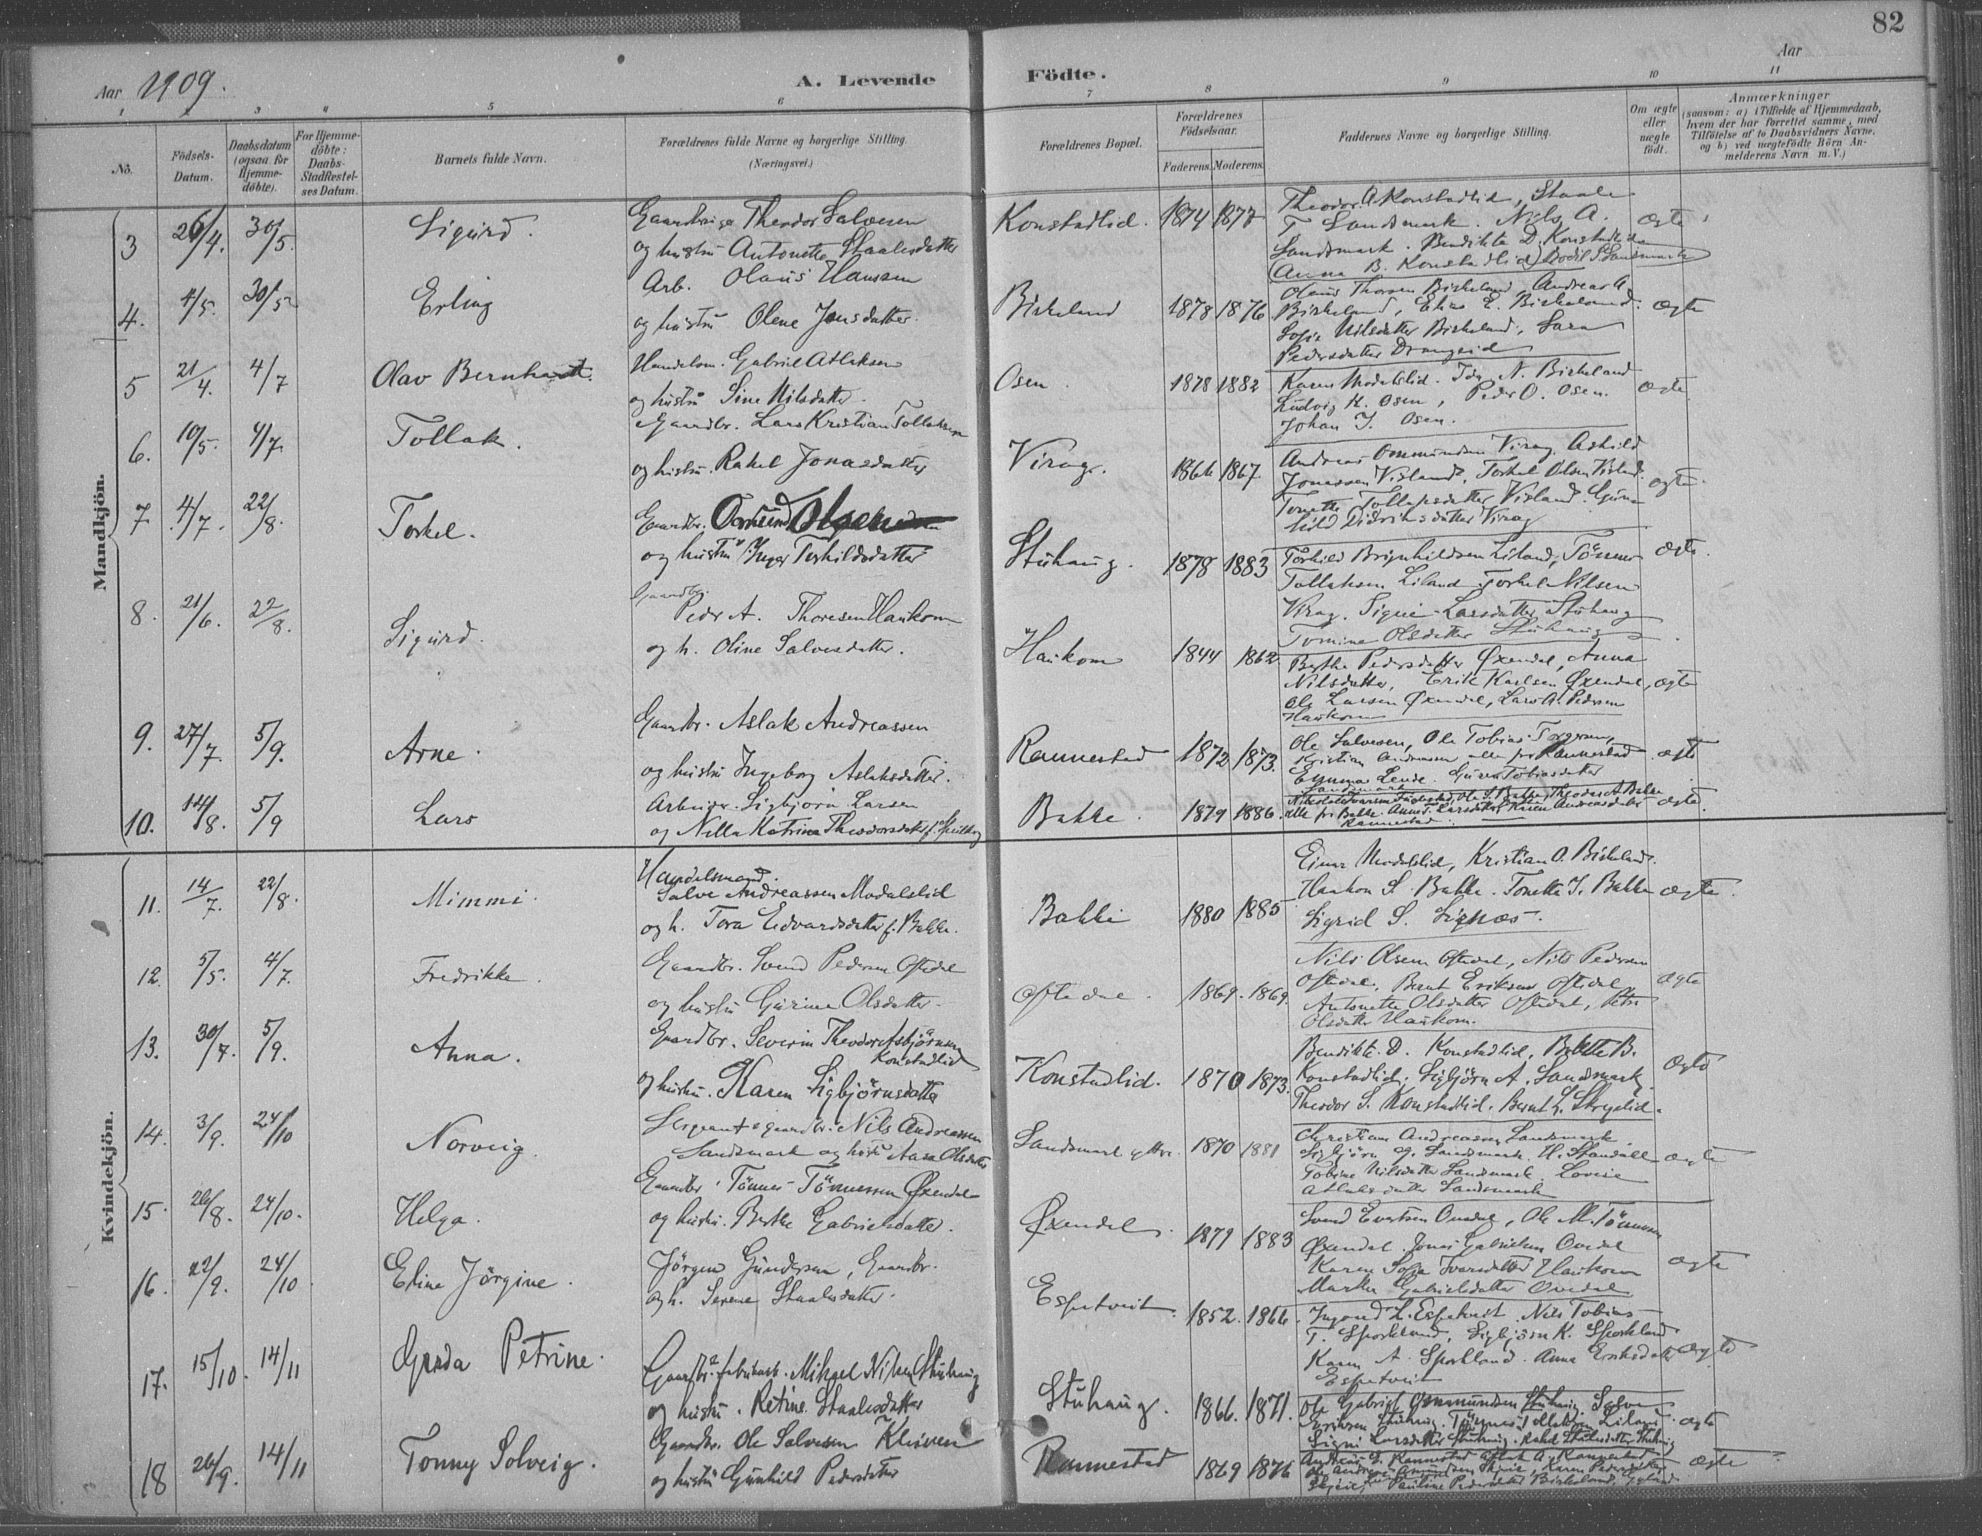 82
Aar 1909.
A. Levende Födte.
Aar
1 3 4 5 6 7 8 9 10 11
No.
Födsels-Datum.
Daabsdatum (ogsaa for Hjemme-döbte).
For Hjemme-döbte: Daabs-Stadfestel-ses Datum.
Barnets fulde Navn.
Forældrenes fulde Navne og borgerlige Stilling. (Næringsvei.)
Forældrenes Bopæl.
Forældrenes Födselsaar.
Faderens. Moderens.
Faddernes Navne og borgerlige Stilling.
Om ægte eller uægte födt.
Anmærkninger
(saasom: a) i Tilfælde af Hjemmedaab, hvem der har forrettet samme, med Tilföielse af to Daabsvidners Navne, og b) ved uægtefödte Börn An-melderens Navn m. V.)
Mandkjön.
3 26/4. 30/5. Sigurd. Theodor Salvesen
og hustru Antonette Staalesdatter
Konstadlid. 1874 1877
Theodor A Konstadlid, Staale
T. Sandsmark. Nils A.
Sandsmark. Bendikte D. Konstadlid
Anna B. Konstadlid, Bodil S Sandsmark
ægte
4. 4/5. 30/5 Erling Arb. Olaus Hanssen
og hustru Olene Jonsdatter.
Birkeland 1878 1876
Olaus Thorsen Birkeland, Andreas A.
Birkeland, Elias E. Birkeland.
Sofie Nilsdatter Birkeland, Sara
Pedersdatter Drangeid
ægte
5 21/4. 4/7 Olav Bernhardt. Handelsm. Gabriel Atlaksen
og hustru Sine Nilsdatter.
Osen. 1878 1882
Karen Modalslid. N. Birkeland
Ludvig K. Osen, Peder O. Osen.
Johan I. Osen.
ægte
6. 10/5. 4/7. Tollak. Gaardbr. Lars Kristian Tollaksen
og hustru. Rakel Jonasdatter
Virag. 1866 1867.
Andreas Ommundsen Virag, Askild
Jonassen Visland, Torkel Olsen Visland.
Tonette Tollaksdatter Visland. Gun-
hild Didriksdatter Virag
ægte.
7. 4/7. 22/8. Torkel. Gaardbr. Olsen
og hustru Inger Torkildsdatter
Stuhaug. 1878 1883
Torkild Brynhildsen Liland, Tönnes
Tollaksen Liland Torkel Nilsen
Virag. Signe Larsdatter Stuhaug
Tomine Olsdatter Stuhaug
ægte.
8. 21/6. 22/8. Sigurd. Gaardbr.
Peder A. Thoresen Haukom
og h. Oline Salvesdatter.
Haukom 1844 1862.
Berthe Pedersdatter Øxendal, Anna
Nilsdatter, Erik Karlsen Øxendal,
Ole Larsen Øxendal, Lars A. Pedersen
Haukom
ægte
9. 27/7. 5/9. Arne. Gaardbr. Aslak Andreassen
og hustru Ingeborg Aslaksdatter.
Rannestad 1872 1873.
Ole Salvesen, Ole Tobias Torgersen,
Kristian Andreassen alle fra Rannestad
Emma Lende. Guren Tobiasdatter
Sandsmark
ægte
10. 14/8. 5/9 Lars Arbeider. Sigbjörn Larsen
og Nilla Katrina Theodorsdatter
Bakke. 1879 1886.
Ole S. Bakke, Theodor A Bakke
alle fra Bakke. Anne T. Larsdatter, Karen Andreasdatter
Rannestad
ægte.
Kvindekjön.
11. 14/7. 22/8. Mimmi. Handelsmand.
Salve Andreassen Modalslid
og h. Tora Edvardsdatter f. Bakke.
Bakke 1880 1885
Einar Modalslid, Kristian O. Birkeland.
Haakon S. Bakke. Tonette J. Bakke
Sigrid S. Signæs.
ægte.
12. 5/5. 4/7. Fredrikke. Gaardbr. Svend Pedersen Oftedal
og hustru Gurine Olsdatter.
Oftedal. 1869. 1869.
Nils Olsen Oftedal, Nils Pedersen
Oftedal. Bernt Eriksen Oftedal
Antonette Olsdatter Oftedal, Petra
Olsdatter Haukom.
ægte
13. 30/7. 5/9. Anna. Gaardbr. Severin Theodor Asbjörnsen
Konstadlid
og hustru. Karen Sigbjörnsdatter
Konstadlid. 1870 1873.
Bendikte. D. Konstadlid, B.
Konstadlid, Sigbjörn A. Sandsmark,
Theodor S. Konstadlid. Bernt L. Skregelid.
ægte
14. 3/9. 24/10 Norveig. Sergeant & gaardbr. Nils Andreassen
Sandsmark og hustru Aasa Olsdatter
Sandsmark yttre. 1870 1881
Christian Andreassen Sandsmark.
Sigbjörn G. Sandsmark. H. Standall
Tobine Nilsdatter Sandsmark, Lovise
Atlaksdatter Sandsmark
ægte
15. 26/8. 24/10. Helga. Gaardbr. Tönnes Tönnessen Øxendal
og hustru. Berthe Gabrielsdatter.
Øxendal. 1879 1883
Svend Evertsen Ovedal, Ole M. Tönnessen
Øxendal. Jonas Gabrielsen Ovedal
Karen Sofie Iversdatter Haukom
Marthe Gabrielsdatter Ovedal
ægte
16. 22/9. 24/10 Eline Jörgine. Jörgen Gundersen, Gaardbr.
og h. Serene Staalesdatter.
Espetveit 1852. 1866.
Ingvald L. Espetveit. Nils Tobias
T. Sporkland, Sigbjörn K. Sporkland
Karen A. Sporkland. Anna Eriksdatter
Espetveit
ægte
17. 15/10. 14/11 Gerda Petrine. Gaardbr. & fabrikarb. Mikael Nilsen Stuhaug
og hustru. Retine Staalesdatter
Stuhaug. 1866. 1871.
Ole Gabriel Ommundsen Stuhaug, Salve
Eriksen Stuhaug. Tönnes Tollaksen Liland
Signi Larsdatter Stuhaug. Rakel Staalesdatter Stuhaug
ægte
18 26/9. 14/11 Tonny Solveig. Gaardbr. Ole Salvesen Kleiven
og hustru Gunhild Pedersdatter
Rannestad 1869 1876
Andreas G. Rannestad Aslak A. Rannestad
Pauline Pedersdatter Birkeland,
ægte